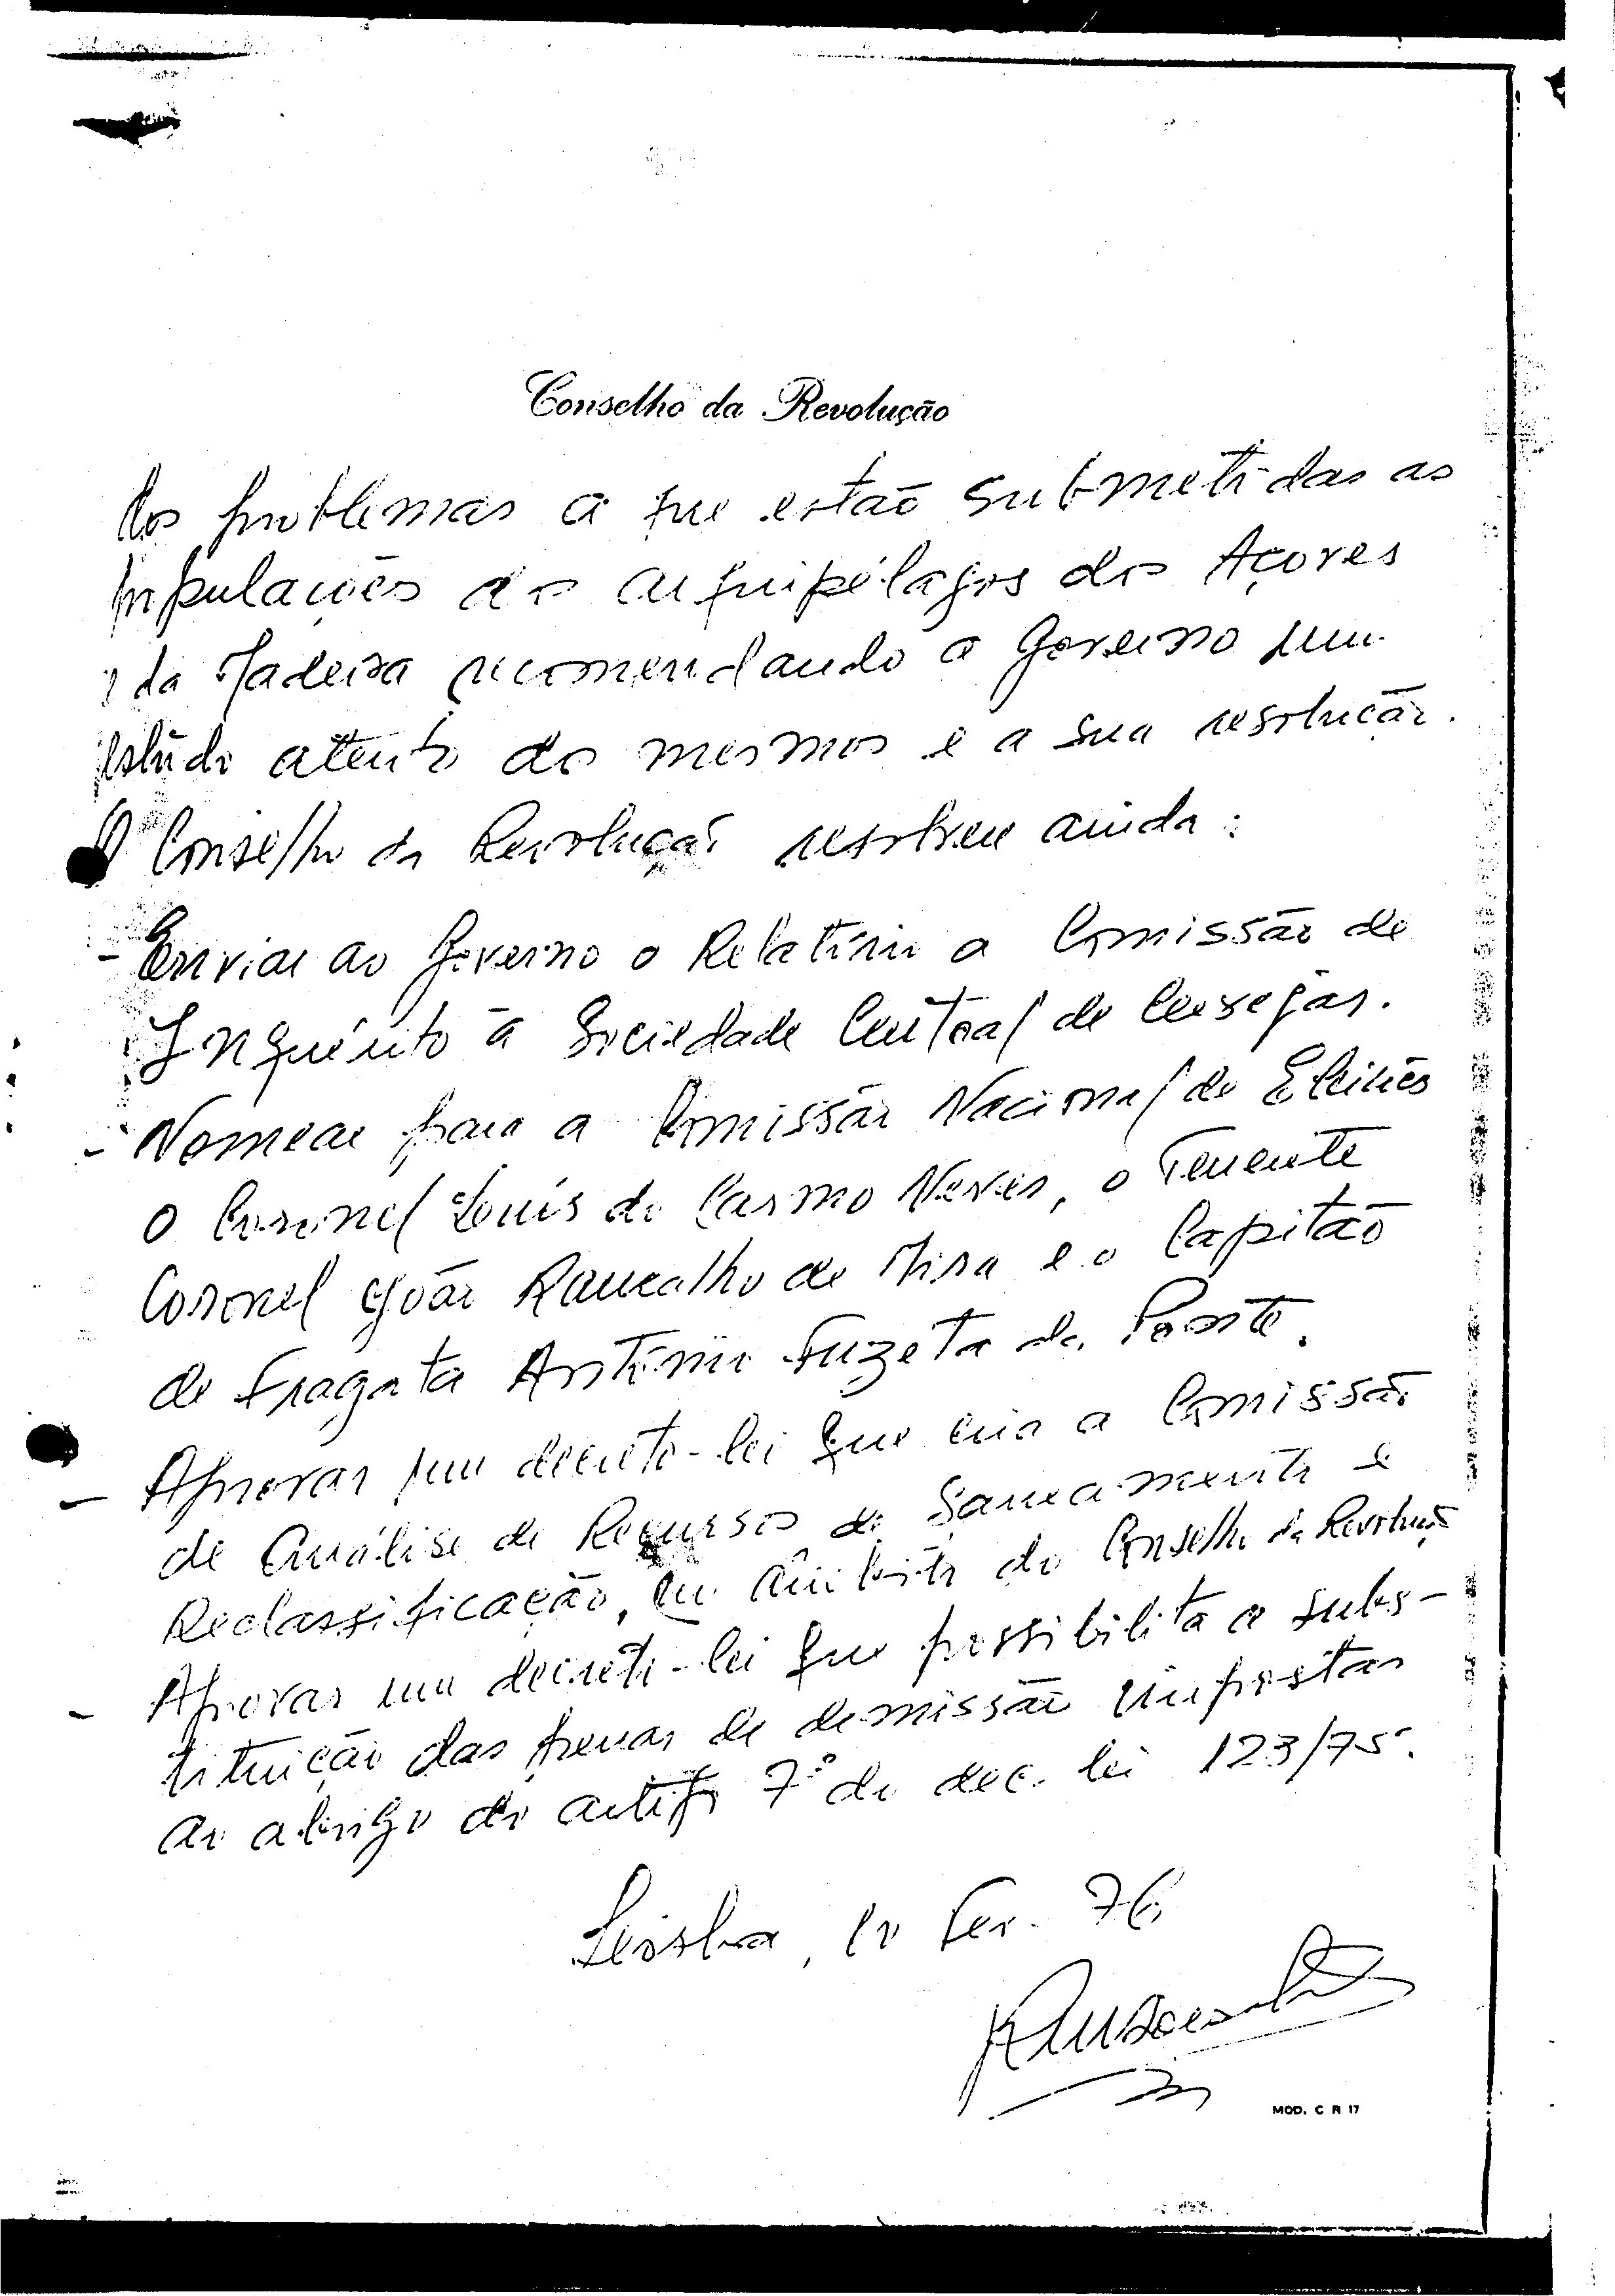 Conselho da Revolução
dos problemas a que estão submetidas as
populações dos arquipélagos dos Açores
e da Madeira recomendando o Governo um
estudo atento dos mesmos e a sua resolução.
O Conselho da Revolução resolveu ainda:
- Enviar ao Governo o Relatório a Comissão de
Inquérito à Sociedade Central de Cervejas.
- Nomear para a Comissão Nacional de Eleições
o Coronel Louis do Carmo Neves, o Tenente
Coronel João Ramalho de Mira e o Capitão
de Fragata António Fuzeta da Ponte.
- Aprovar um decreto-lei que cria a Comissão
de Análise de Recursos de Saneamento e
Reclassificação, no âmbito do Conselho da Revolução
- Aprovar um decreto-lei que possibilita a subs-
tituição das penas de demissão impostas
ao abrigo do artigo 7º do dec. lei 123/75.
Lisboa, Fev. 76
MOD. C R 17